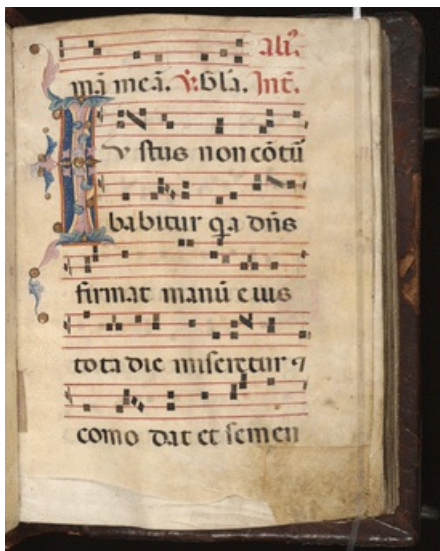 ali͛.
mā meā. ℣. Gl̄a. Int̄.
Iustus non cōtu͛
babitur q̄a dn̄s
firmat manū eius
tota die miseretur ⁊
como dat et semen